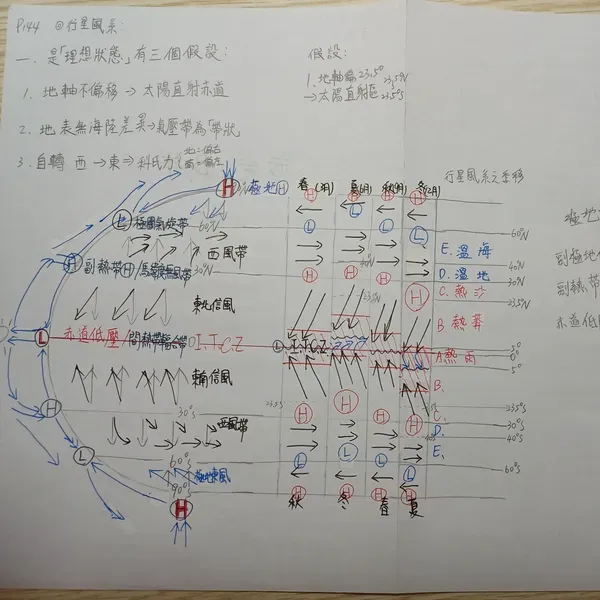 P.144 ◎行星風系:
一. 是「理想狀態」有三個假設:
1. 地軸不偏移→太陽直射赤道
2. 地表無海陸差異→氣壓帶為「帶狀」
3. 自轉 西→東→科氏力
北=偏右
南=偏左
假設:
1. 地軸偏23.5°
→太陽直射區
23.5°N
23.5°S
H 極地H
L 極圈氣旋帶
60°N
西風帶
H 副熱帶H/馬緯度無風帶
30°N
東北信風
L 赤道低壓/間熱帶輻合帶 I.T.C.Z
東南信風
H
30°S
西風帶
L
60°S
極地東風
90°S
H
春(3月) 夏(6月) 秋(9月) 冬(12月)
行星風系之季移
H H H H
L L L L
60°N
E. 溫海
40°N
D. 溫地
30°N
H H H
C. 熱沙
H
23.5°N
B 熱莽
L I.T.C.Z
A熱雨
5°
0°
5°
B.
23.5°S
H H H H
C.
23.5°S
30°S
D.
40°S
E.
L L L L
60°S
H H H H
秋 冬 春 夏
極地
副極地
副熱帶
赤道低